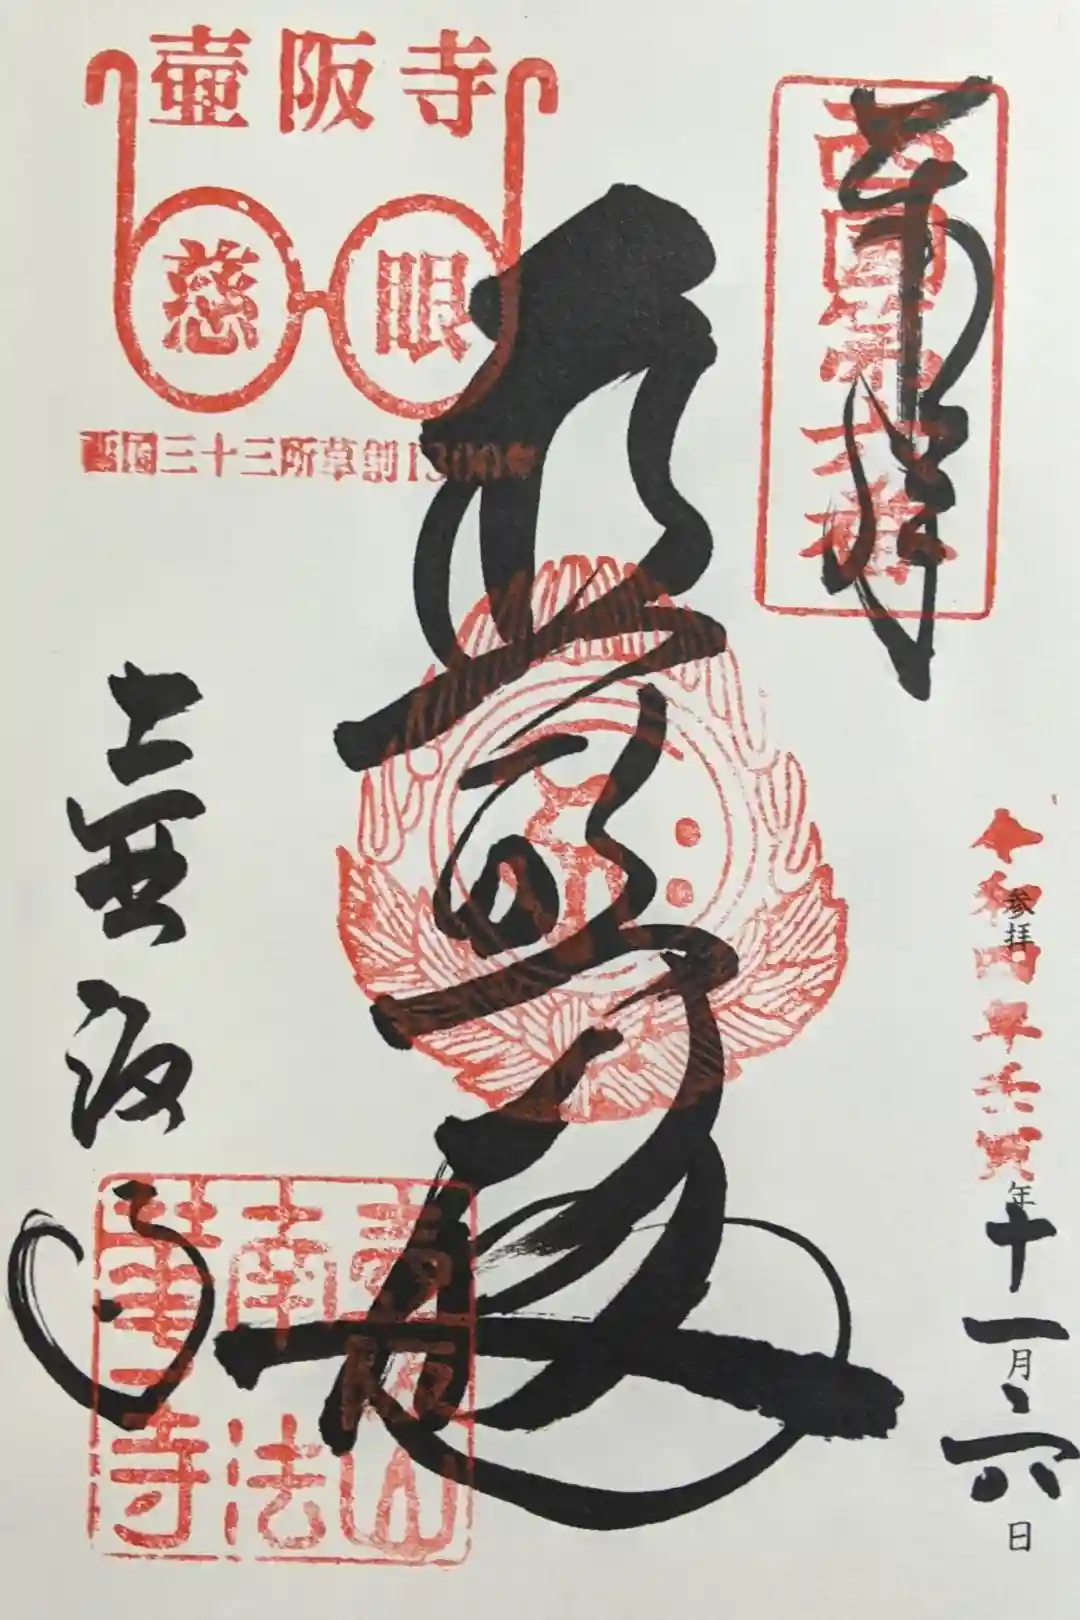 奉拝
西国第六番
参拝
令和四年壬寅
年十一月六日
普照殿
壺阪寺
慈眼
西国三十三所草創1300年
壺阪寺
壺阪山
南法
華寺